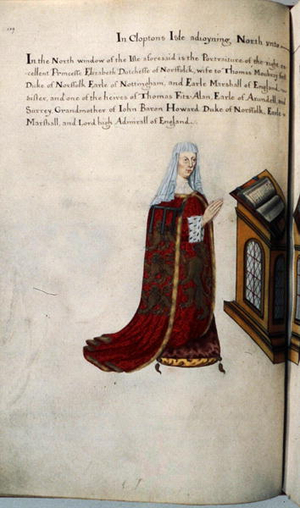 In Cloptons Isle adioyning, North
In the North window of the Ile aforesaid is the Portraiture of the right, ex-
cellent Princesse Elizabeth Dutchesse of Norffolck, wife to Thomas Mowbray first
Duke of Norffolk Earle of Nottingham, and Earle Marshall of England,
sister, and one of the heires of Thomas Fitz-Alan, Earle of Arundell, and
Surrey, Grandmother of Iohn Baron Howard Duke of Norffolk, Earle
Marshall, and Lord high Admirall of England.